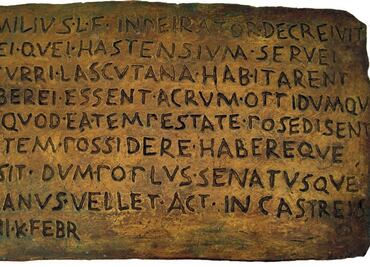 MILIUS·L·F·INPEIRATOR·DECREIVIT
EI·QUEI·HASTENSIUM·SERVEI
TURRI·LASCUTANA·HABITARENT
BEREI·ESSENT·AGRUM·OPPIDUMQU
QUOD·EA·TEMPESTATE·POSEDISENT
TEM·POSSIDERE·HABEREQUE
SIT·DUM·POPLUS·SENATUSQUE
ANUS·VELLET·ACT·IN·CASTREIS
II·K·FEBR